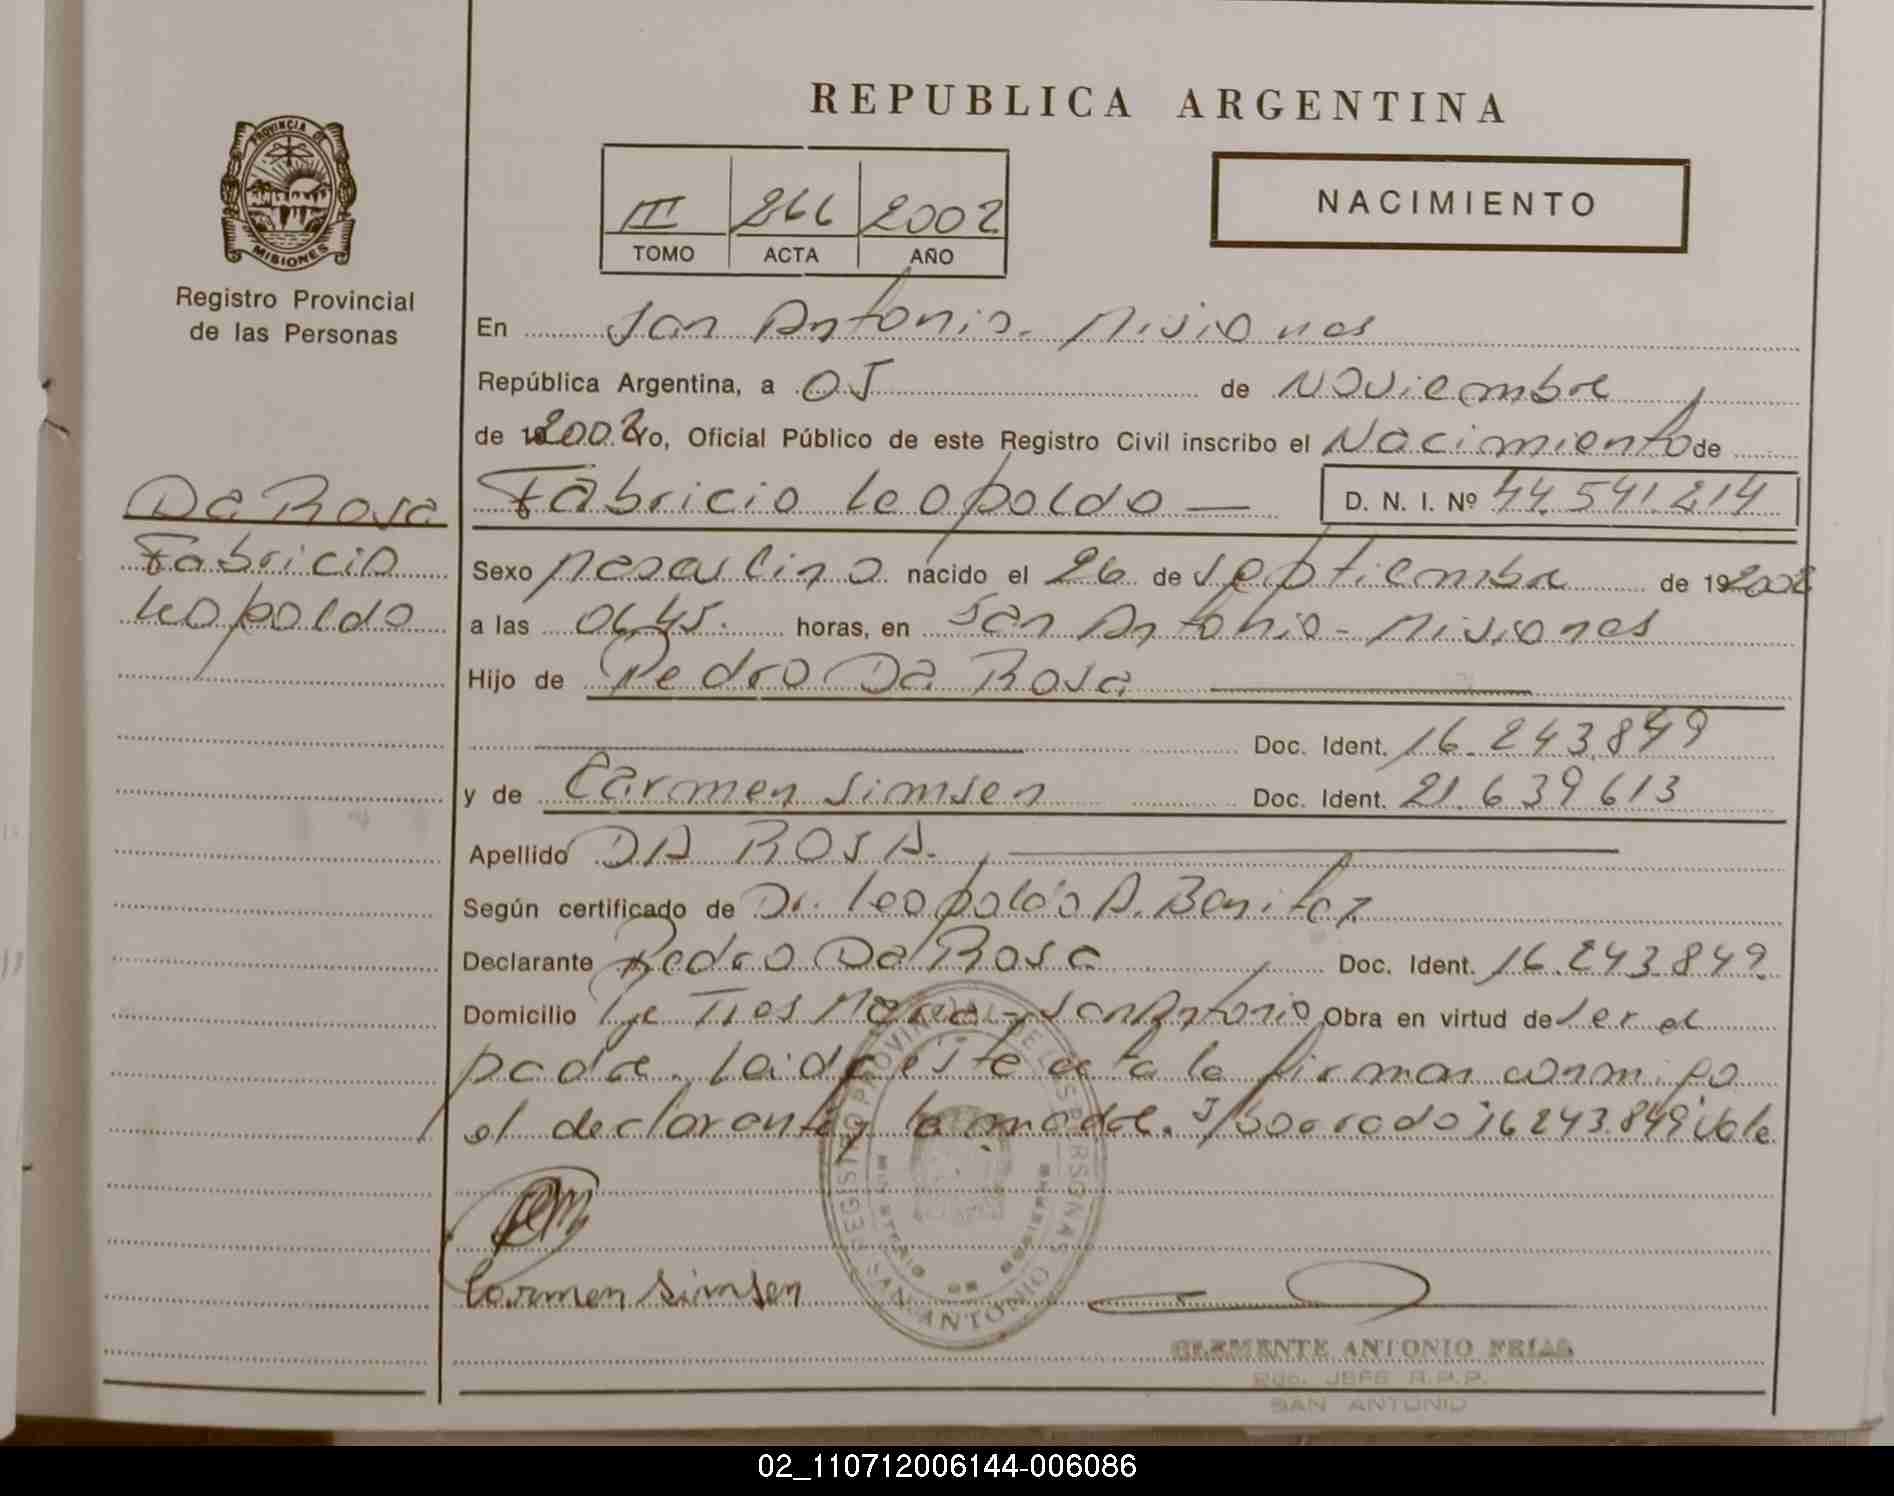 REPUBLICA ARGENTINA
PROVINCIA DE
MISIONES
Registro Provincial
de las Personas
III 266 2002
TOMO ACTA AÑO
NACIMIENTO
En San Antonio - Misiones
República Argentina, a 05 de Noviembre
de 2002 Yo, Oficial Público de este Registro Civil inscribo el Nacimiento de
Da Rosa
Fabricio
Leopoldo
Fabricio Leopoldo — D. N. I. Nº 44.541.214
Sexo Masculino nacido el 26 de Septiembre de 192002
a las 06,45. horas, en San Antonio - Misiones
Hijo de Pedro Da Rosa
Doc. Ident. 16.243.849
y de Carmen Simsen Doc. Ident. 21.639.613
Apellido DA ROSA.
Según certificado de Dr. Leopoldo A. Benitez
Declarante Pedro Da Rosa Doc. Ident. 16.243.849.
Domicilio Tres San Antonio Obra en virtud de ser el
padre. Leida este acta la firman conmigo
el declarante y la madre. S/borrado "16.243.849" Vale
Carmen Simsen
REGISTRO PROVINCIAL DE LAS PERSONAS
MINISTERIO DE GOBIERNO
SAN ANTONIO
CLEMENTE ANTONIO FRIAS
JEFE R.P.P.
SAN ANTONIO
02_110712006144-006086